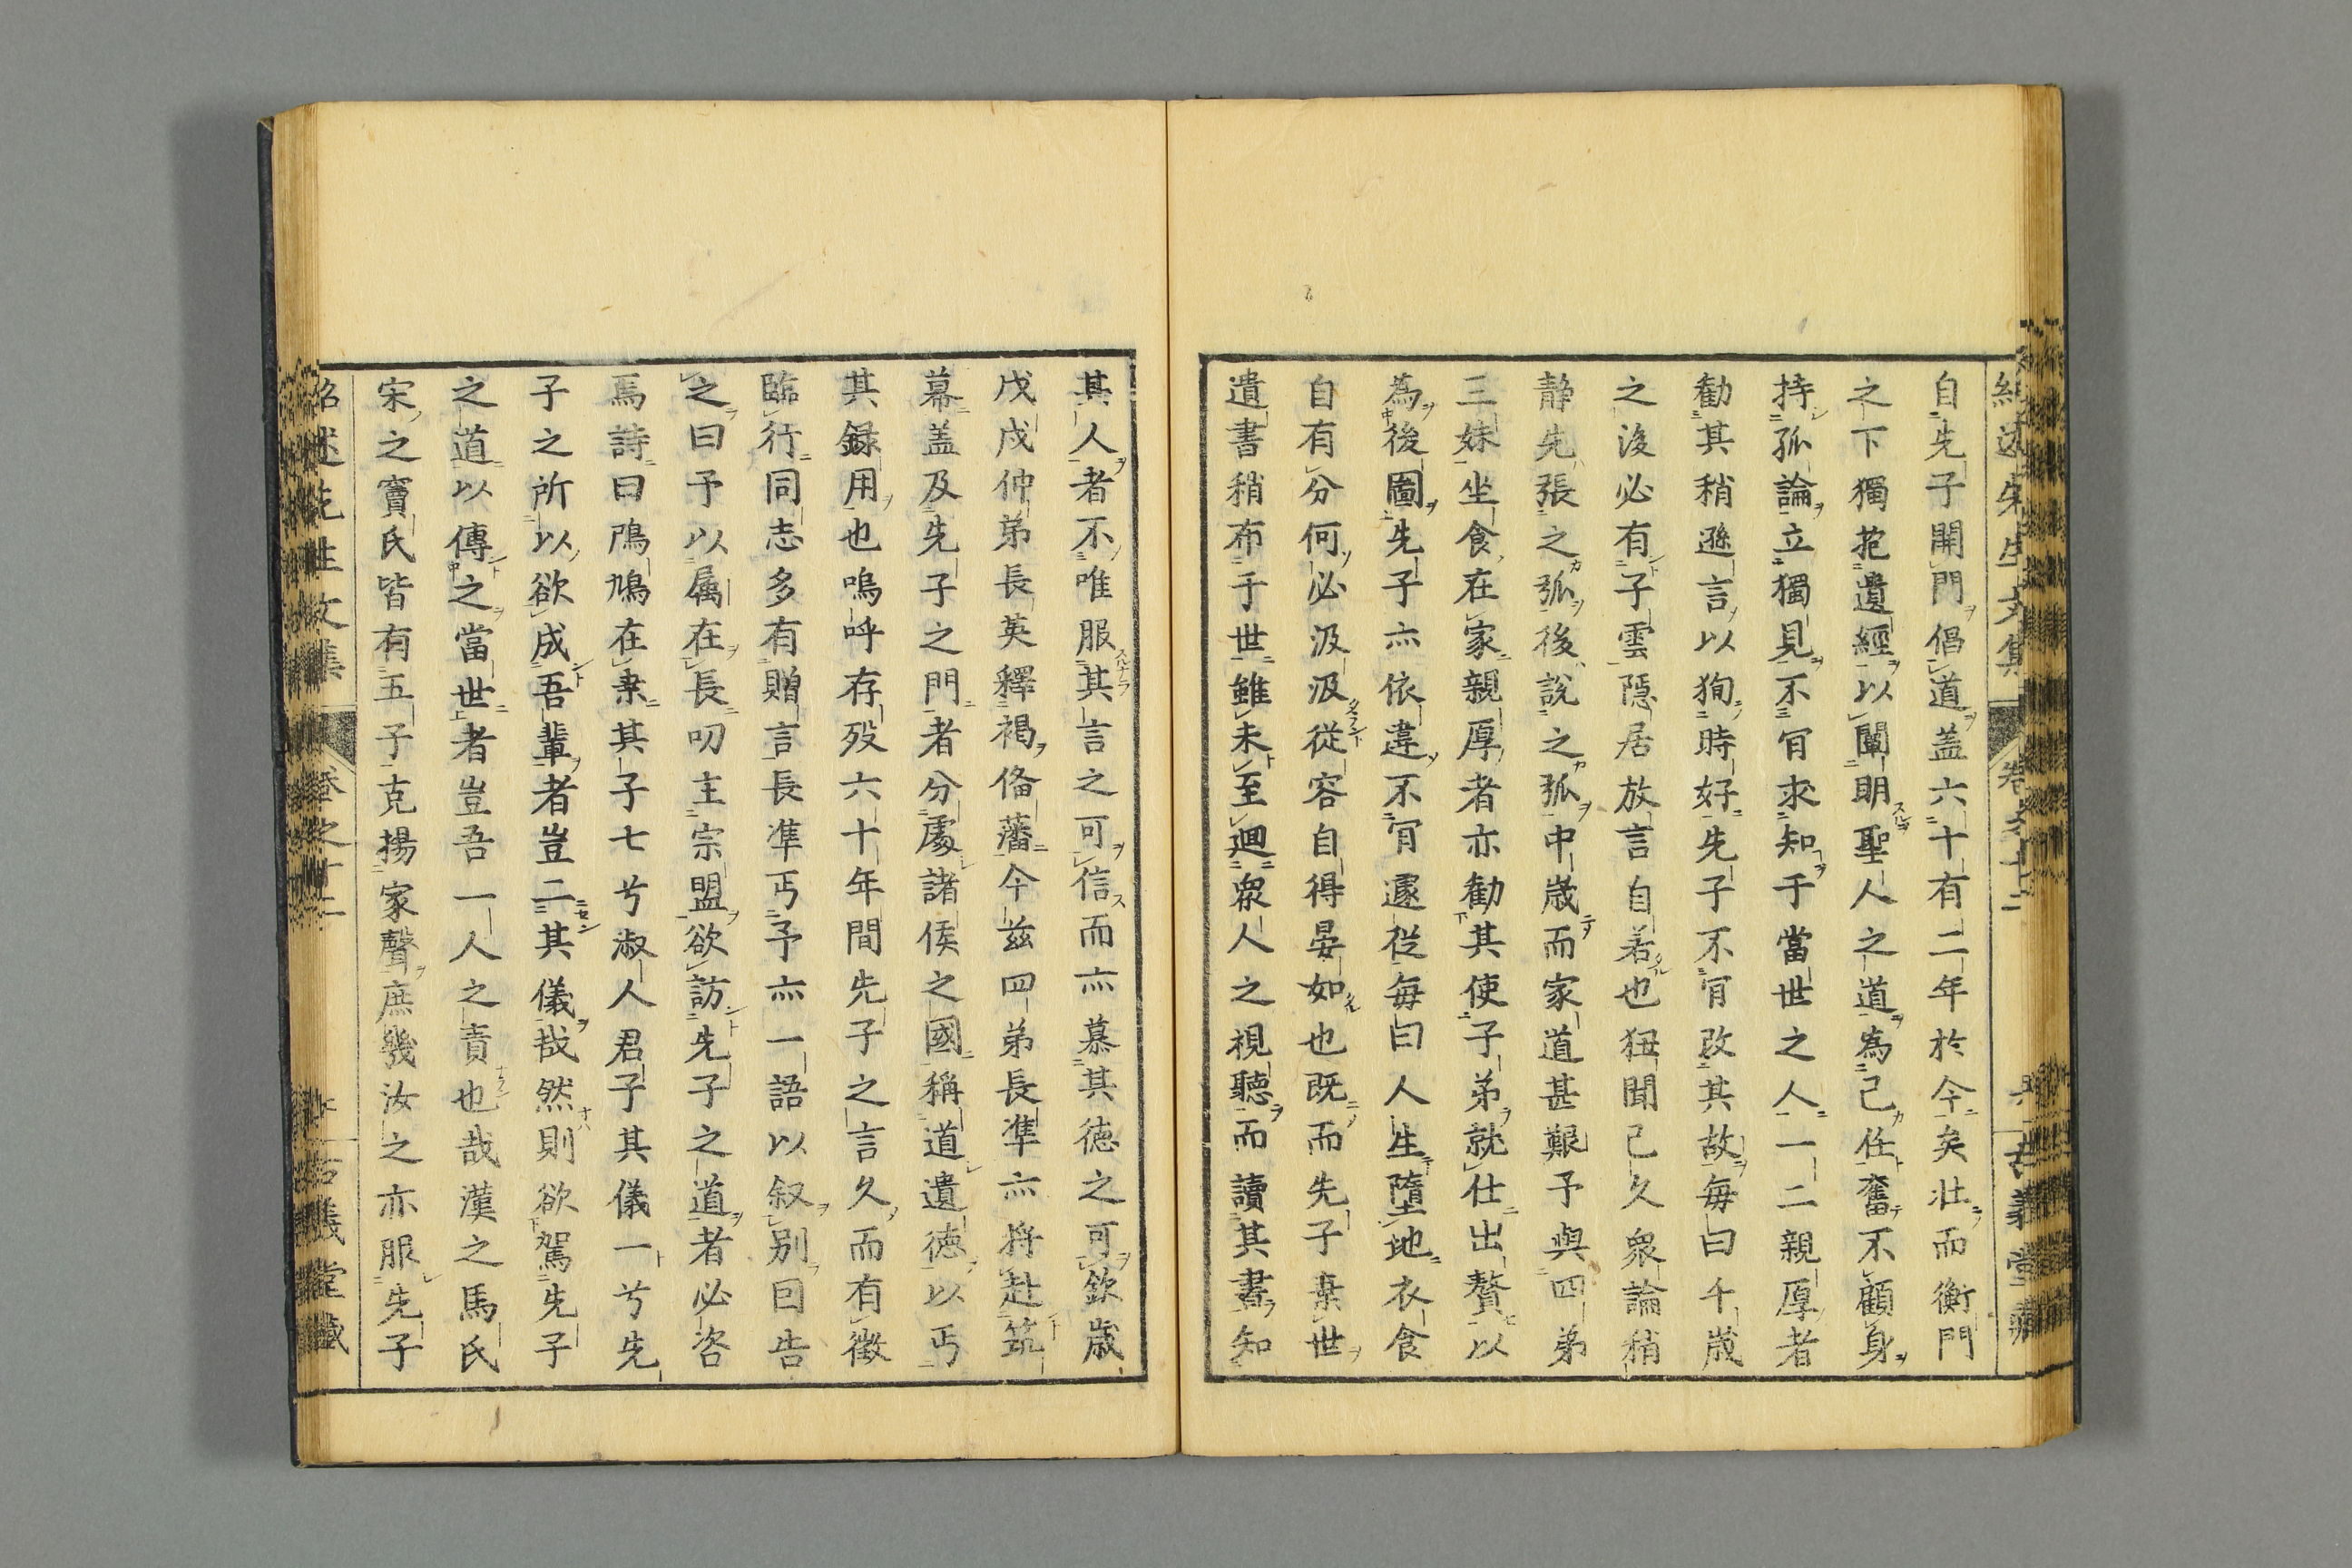 自先子開門倡道蓋六十有二年於今矣壮而衡門
之下獨抱遺經以闡明聖人之道爲己任奮不顧身
持孤論立獨見不肎求知于當世之人一二親厚者
勸其稍遜言以狥時好先子不肎改其故毎曰千歳
之後必有子雲隠居放言自若也狃聞已久衆論稍
静先張之弧後説之弧中歳而家道甚艱予與四弟
三妹坐食在家親厚者亦勸其使子弟就仕出贅以
為後圖先子亦依違不肎遽従毎曰人生墮地衣食
自有分何必汲汲従容自得晏如也既而先子棄世
遺書稍布于世雖未至廽衆人之視聽而讀其書知
其人者不唯服其言之可信而亦慕其徳之可欽歳
戊戌仲弟長英釋褐俻藩今玆四弟長準亦将赴筑
幕蓋及先子之門者分處諸侯之國稱道遺徳以丐
其録用也嗚呼存歿六十年間先子之言久而有徴
臨行同志多有贈言長準丐予亦一語以叙別囙告
之曰予以属在長叨主宗盟欲訪先子之道者必咨
焉詩曰鳲鳩在桒其子七兮淑人君子其儀一兮先
子之所以欲成吾輩者豈二其儀哉然則欲駕先子
之道以傳之當世者豈吾一人之責也哉漢之馬氏
宋之竇氏皆有五子克揚家聲庶幾汝之亦服先子
紹述先生文集
卷之十二
古義堂藏